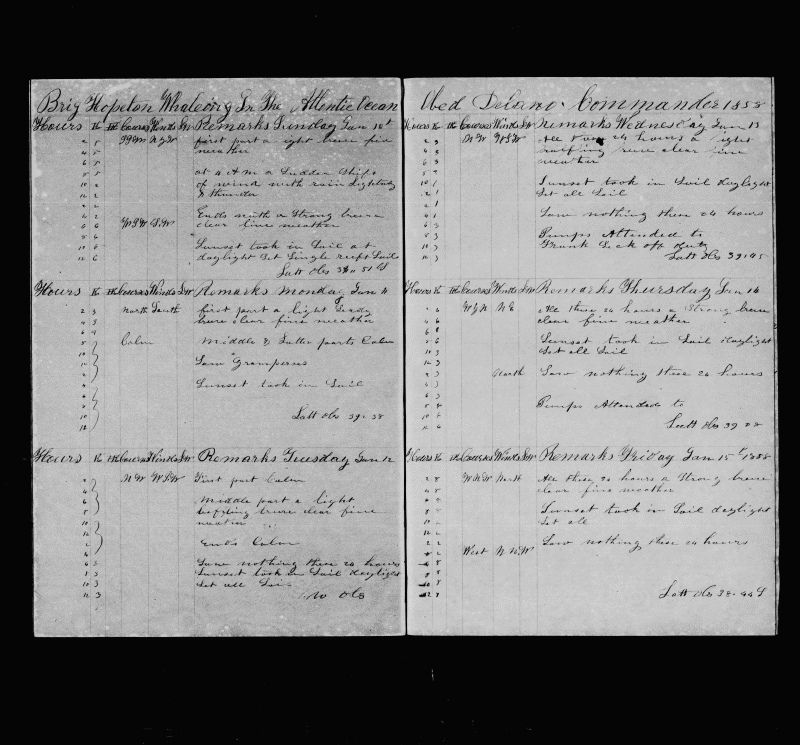 Brig Hopeton Whaleing In The Attlentic Ocean
Hours K HK Courses Winds Lw Remarks Sunday Jan 10th
first part a light breze fine
weather
at 4 A m a Sudden Shift
of wind with rain Lightning
& thunder
Ends with a Strong breze
WSW SW clear fine weather
Sunset took in Sail at
daylight Set Single reeft Sail
Latt Obs
Hours K HK Courses Winds Lw Remarks Monday Jan 11
2 3 North South first part a light Steady
4 3 breze clear fine weather
Calm Middle & Latter parts Calm
Saw Grampuses
Sunset took in Sail
Latt Obs 39-38
Hours K HK Courses Winds Lw Remarks Tuesday Jan 12
NW WSW First part Calm
Middle part a light
baffling breze clear fine
weather
Ends Calm
Saw nothing these 24 hours
Sunset took in Sail daylight
Set all Sail
No Obs
Obed Delano Commander 1858
Hours K HK Courses Winds Lw Remarks Wednesday Jan 13
NW WSW All these 24 hours a light
baffling breze clear fine
weather
Sunset took in Sail daylight
Set all Sail
Saw nothing these 24 hours
Pumps Attended to
Frank Sick off duty
Latt Obs 39:45
Hours K HK Courses Winds Lw Remarks Thursday Jan 14
NE All these 24 hours a Strong breze
clear fine weather
Sunset took in Sail daylight
Set all Sail
North Saw nothing these 24 hours
Pumps Attended to
Latt Obs 39 28
Hours K HK Courses Winds Lw Remarks Friday Jan 15th 1858
WNW North All these 24 hours a Strong breze
clear fine weather
Sunset took in Sail daylight
Set all
Saw nothing these 24 hours
West NNW
Latt Obs 38-44 S